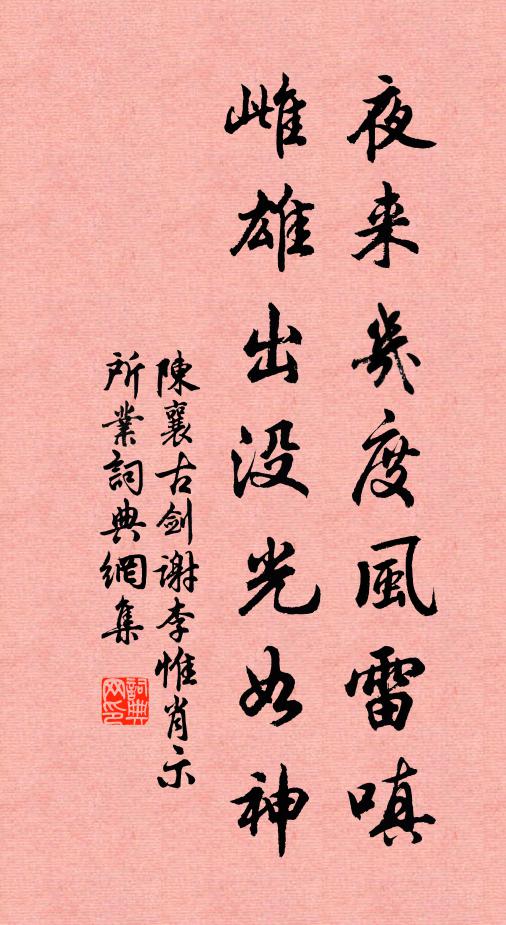 夜来幾度風雷嗔
雌雄出没光如神
陳襄古剑谢李惟肖示
所業詞典網集
詞典网印